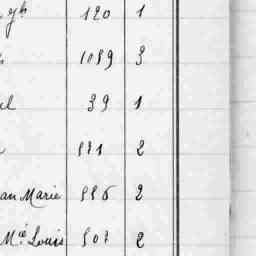 yh 120 1
1089 3
el 39 1
571 2
an Marie 556 2
Mie Louis 507 2